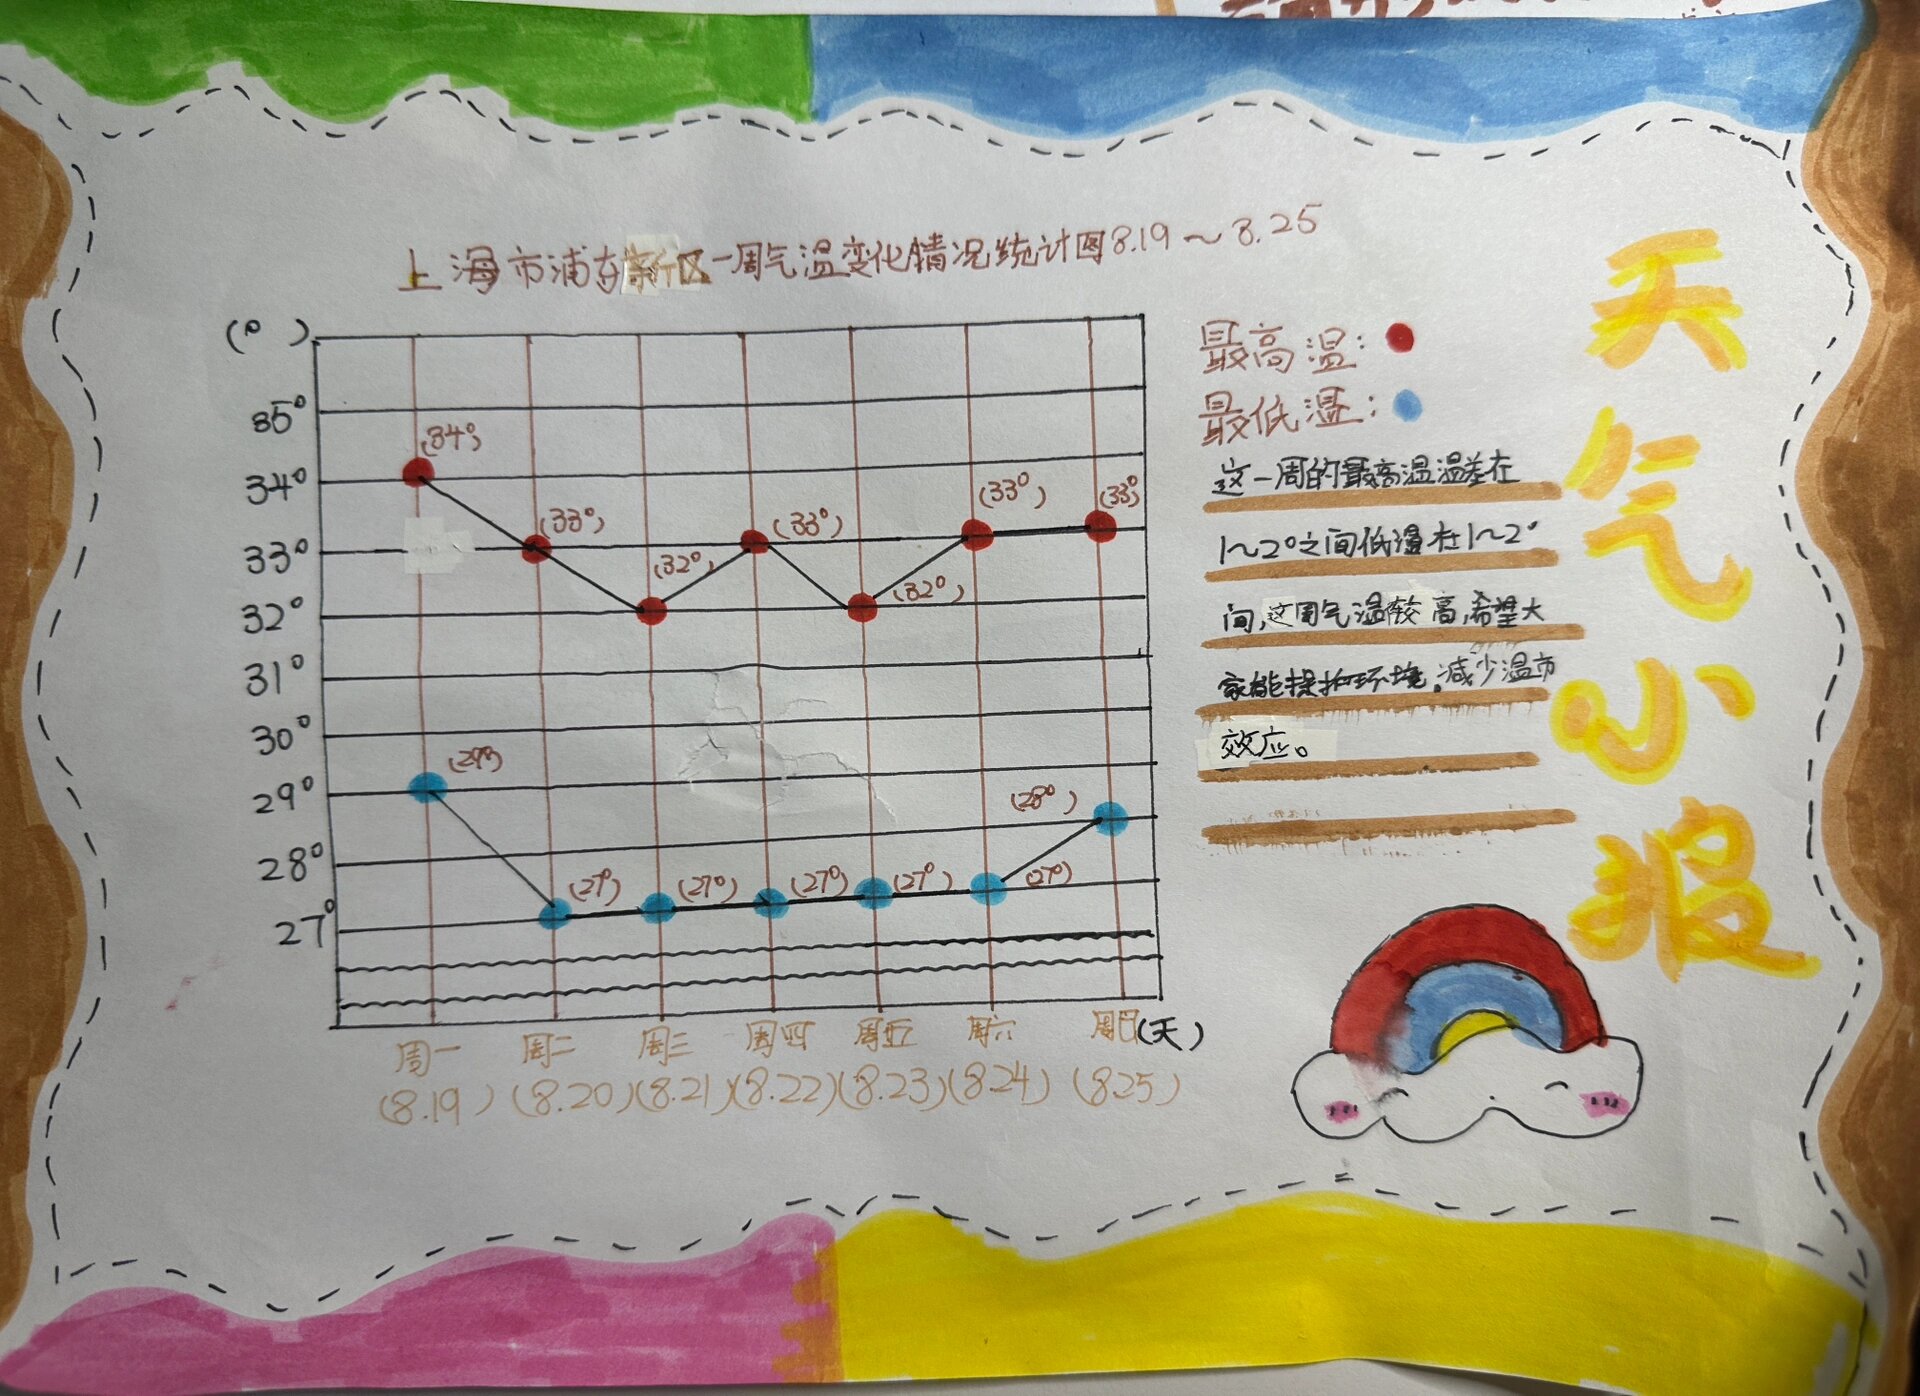 上海市浦东新区一周气温变化情况统计图8.19～8.25
(° )
35°
34°
33°
32°
31°
30°
29°
28°
27°
(34°)
(33°)
(32°)
(33°)
(32°)
(33°)
(33°)
(29°)
(27°)
(27°)
(27°)
(27°)
(27°)
(28°)
周一 周二 周三 周四 周五 周六 周日(天)
(8.19) (8.20) (8.21) (8.22) (8.23) (8.24) (8.25)
最高温：
最低温：
这一周的最高温温差在
1～2°之间低温在1～2°
间，这周气温较高，希望大
家能保护环境，减少温市
效应。
天气小报